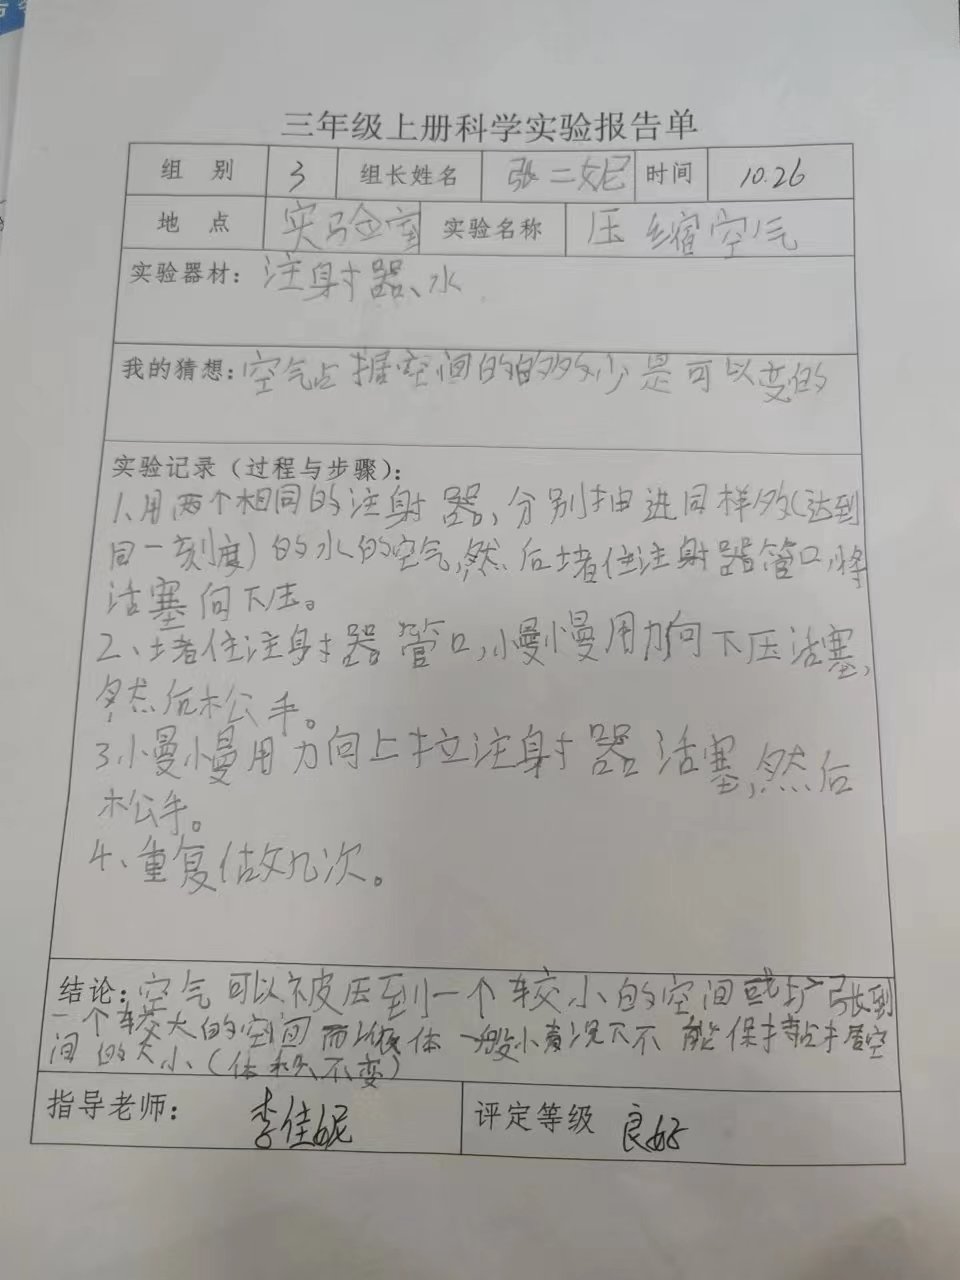 三年级上册科学实验报告单
组 别 3 组长姓名 张二妮 时间 10.26
地 点 实验室 实验名称 压缩空气
实验器材: 注射器、水
我的猜想: 空气占据空间的的多少是可以变的
实验记录（过程与步骤）:
1、用两个相同的注射器,分别抽进同样多(达到
同一刻度)的水的空气,然后堵住注射器管口,将
活塞向下压。
2、堵住注射器管口,慢慢用力向下压活塞,
然后松手。
3、慢慢用力向上拉注射器活塞,然后
松手。
4、重复做几次。
结论: 空气可以被压到一个较小的空间或扩张到
一个较大的空间而液体一般情况下不能保持占据空
间的大小(体积不变)
指导老师: 李佳妮 评定等级 良好